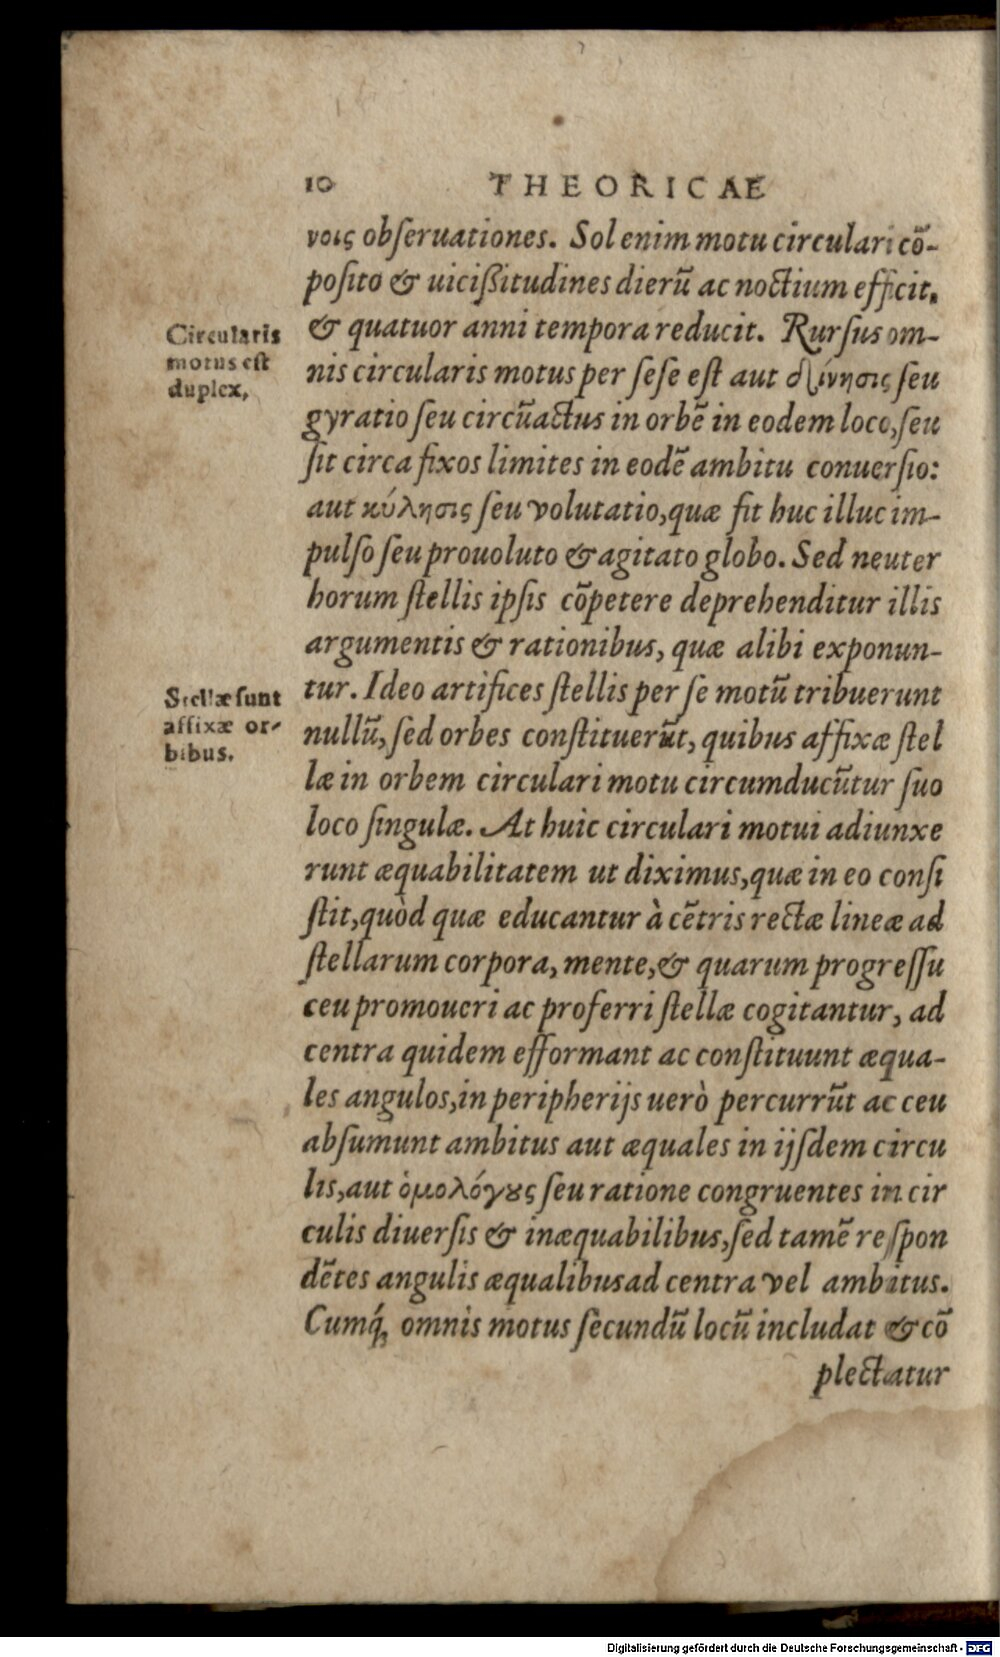 10 THEORICAE
νοις obſeruationes. Sol enim motu circulari cō-
poſito & uicißitudines dierū ac noctium efficit,
& quatuor anni tempora reducit. Rurſus om-
Circularis
motus eſt
duplex,
nis circularis motus per ſeſe eſt aut δίνησις ſeu
gyratio ſeu circūactus in orbē in eodem loco, ſeu
ſit circa fixos limites in eodē ambitu conuerſio:
aut κύλησις ſeu volutatio, quæ fit huc illuc im-
pulſo ſeu prouoluto & agitato globo. Sed neuter
horum ſtellis ipſis cōpetere deprehenditur illis
argumentis & rationibus, quæ alibi exponun-
Stellæ ſunt
affixæ or-
bibus.
tur. Ideo artifices ſtellis per ſe motū tribuerunt
nullū, ſed orbes conſtituerūt, quibus affixæ ſtel
læ in orbem circulari motu circumducūtur ſuo
loco ſingulæ. At huic circulari motui adiunxe
runt æquabilitatem ut diximus, quæ in eo conſi
ſtit, quòd quæ educantur à cētris rectæ lineæ ad
ſtellarum corpora, mente, & quarum progreſſu
ceu promoueri ac proferri ſtellæ cogitantur, ad
centra quidem efformant ac conſtituunt æqua-
les angulos, in peripherijs uerò percurrūt ac ceu
abſumunt ambitus aut æquales in ijſdem circu
lis, aut ὁμολόγȣς ſeu ratione congruentes in cir
culis diuerſis & inæquabilibus, ſed tamē reſpon
dētes angulis æqualibus ad centra vel ambitus.
Cumq́; omnis motus ſecundū locū includat & cō
plectatur
Digitalisierung gefördert durch die Deutsche Forschungsgemeinschaft - DFG